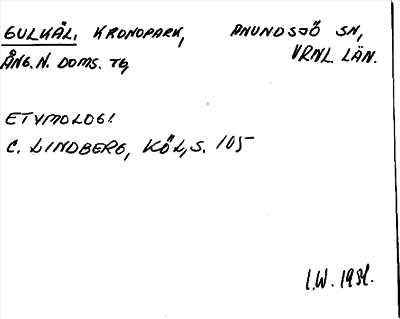 GULKÅL, KRONOPARK, ANUNDSJÖ SN,
ÅNG. N. DOMS. TG, VRNL. LÄN.
ETYMOLOGI
C. LINDBERG, KÖL, S. 105
I.W. 1981.